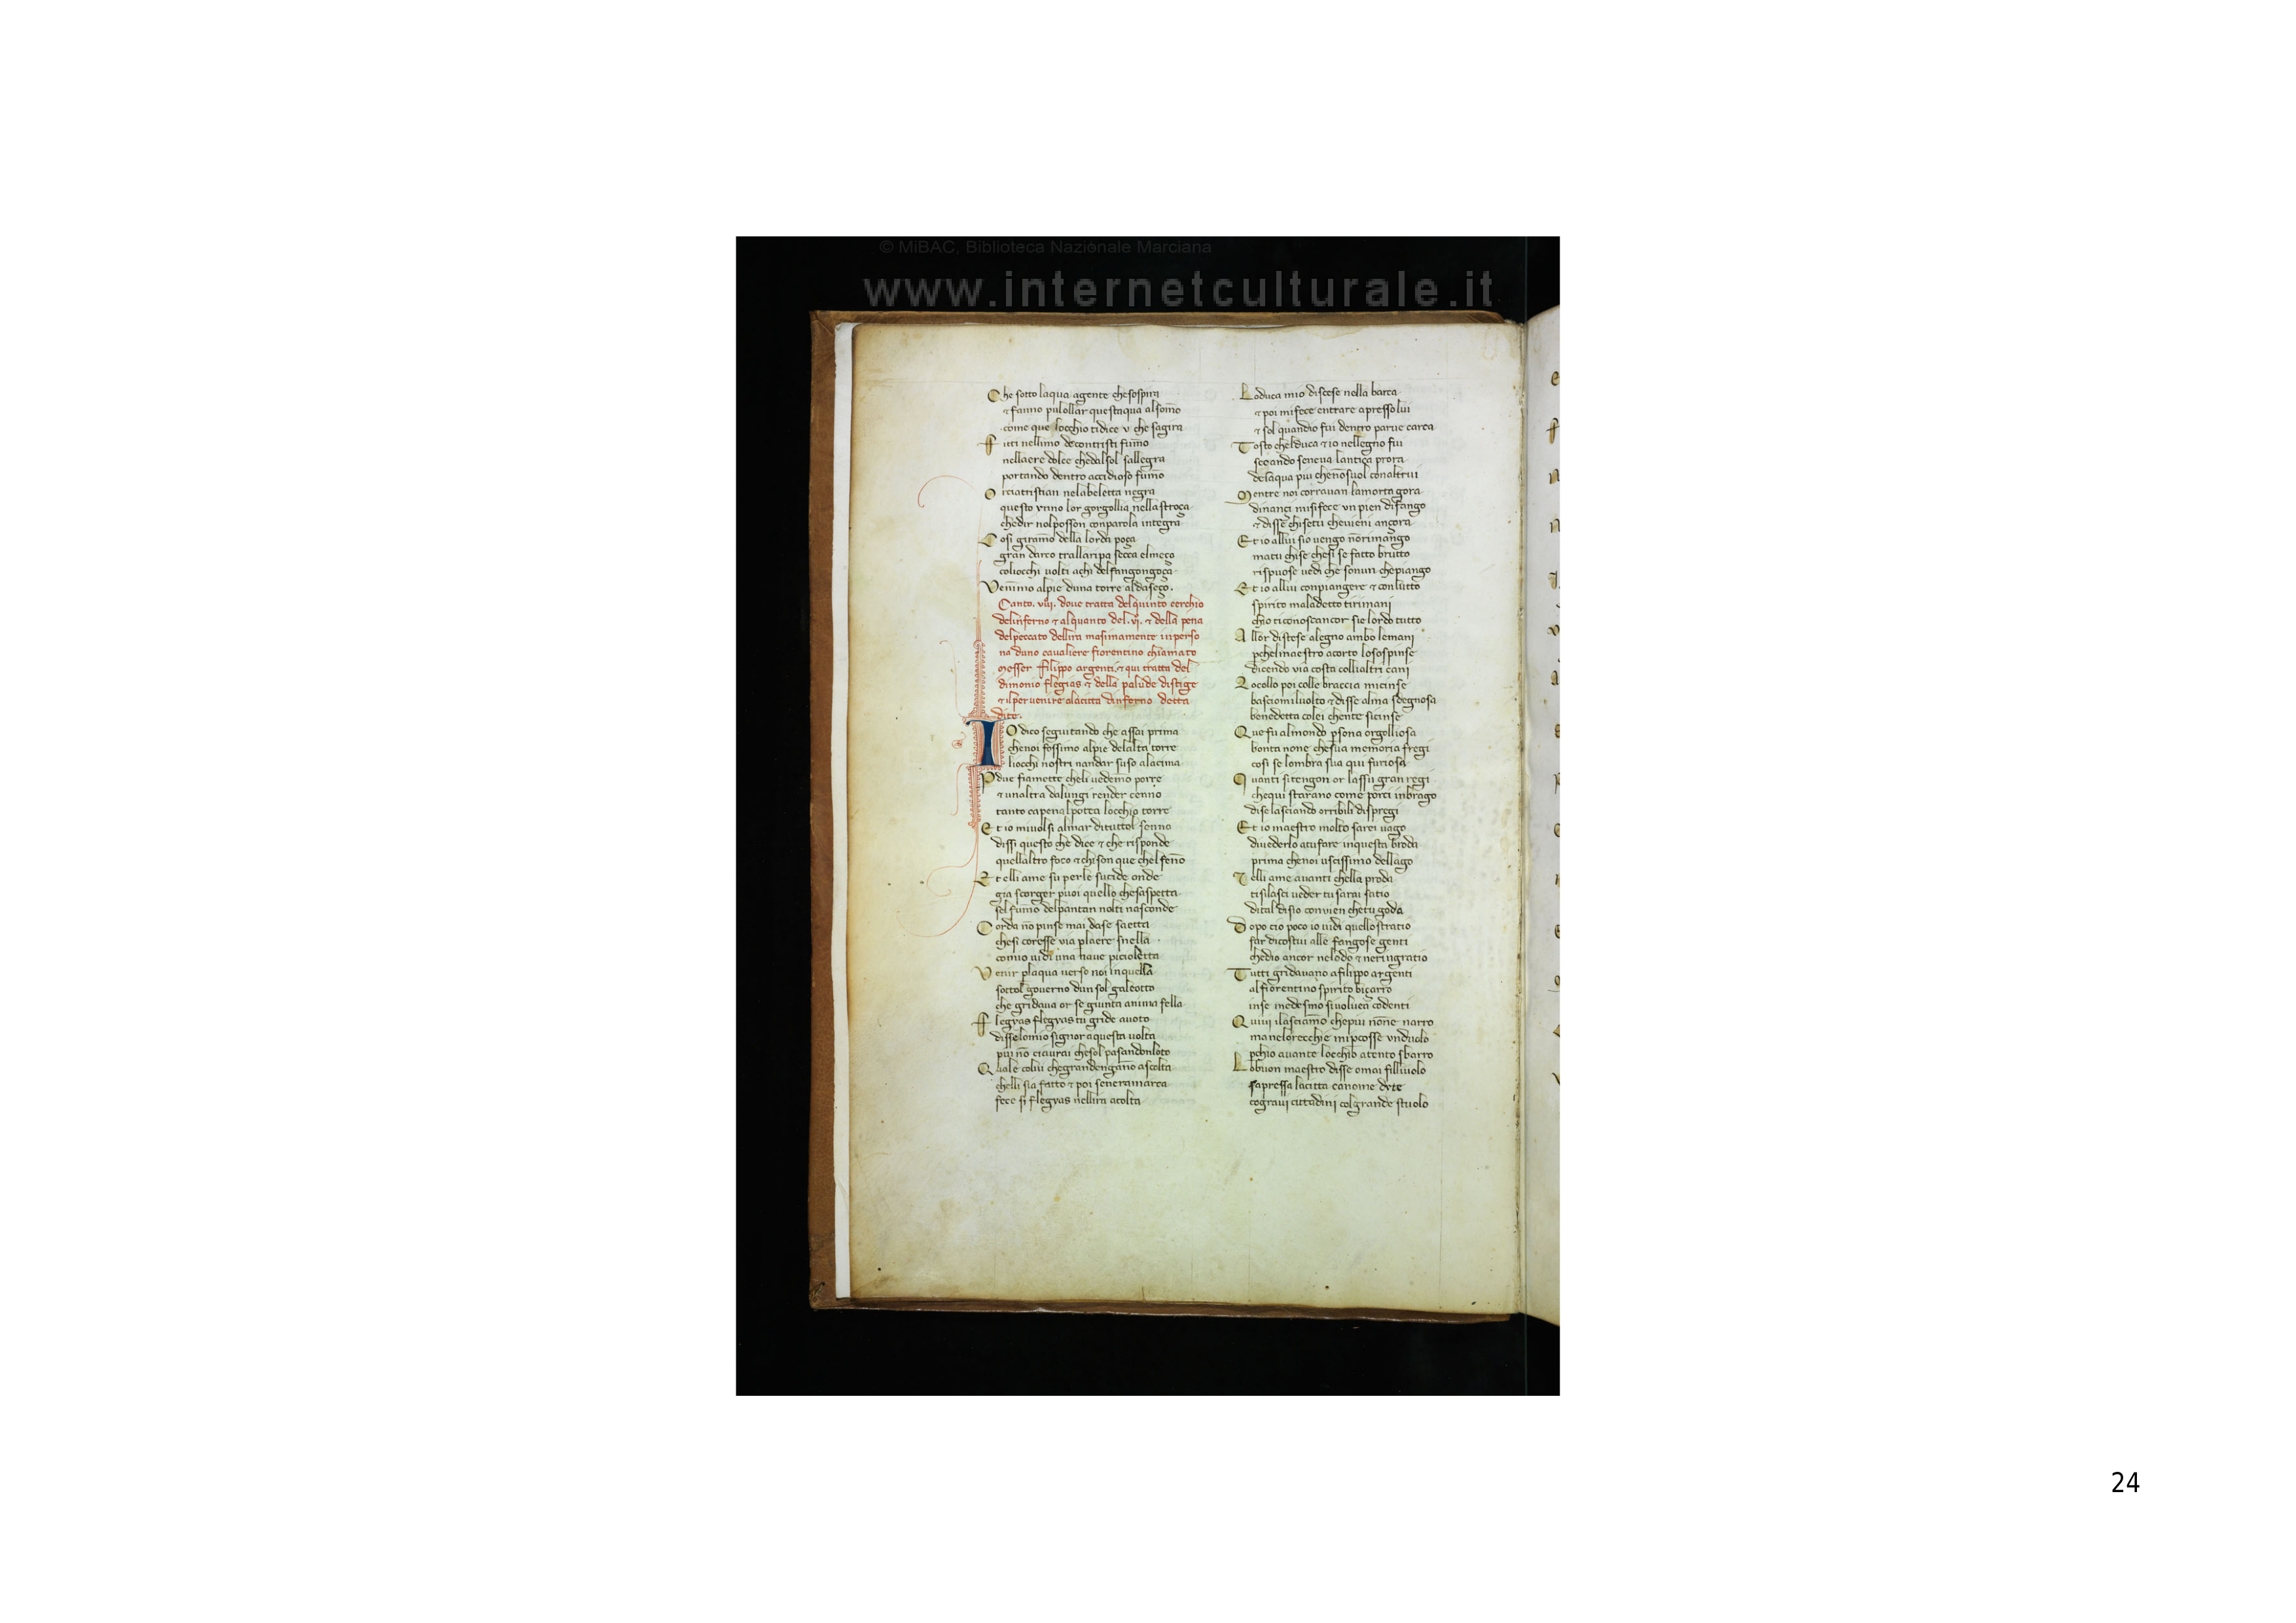 © MiBAC, Biblioteca Nazionale Marciana
www.internetculturale.it
Che sotto laqua agente chesospira
⁊ fanno pulollar questaqua alsom̄o
come que locchio tidice v che sagira
Fitti nellimo decontristi fum̄o
nellaere dolce chedalsol sallegra
portando dentro accidioso fum̄o
Orciatristian nelabeletta negra
questo ynno lor gorgollia nella stroça
chedir nolposson conparola integra
Cosi giram̄o della lorda poça
gran darco trallaripa secca elmeço
coliocchi uolti achi delfangongoça
Venim̄o alpie duna torre aldaseço.
Canto. viii. doue tratta delquinto cerchio
delinferno ⁊ alquanto del. vi. ⁊ della pena
delpeccato dellira masimamente inperso
na duno caualiere fiorentino chiamato
messer filippo argenti. ⁊ qui tratta del
dimonio flegias ⁊ della palude distige
⁊ ilperuenire alacitta dinferno detta
dite.
IO dico seguitando che assai prima
chenoi fossimo alpie delalta torre
liocchi nostri nandar suso alacima
Pdue fiamette cheli uedem̄o porre
⁊ unaltra dalungi render cenno
tanto capenalpotea locchio torre
Et io miuolsi almar dituttol senno
dissi questo che dice ⁊ che risponde
quellaltro foco ⁊ chison que chelfen̄o
Et elli ame su perle sucide onde
gia scorger puoi quello chesaspetta
sel fum̄o delpantan nolti nasconde
Corda nō pinse mai dase saetta
chesi coresse via plaere snella
comio uidi una naue picioletta
Venir plaqua uerso noi inquella
sottol gouerno dun sol galeotto
che gridaua or se giunta anima fella
Flegyas flegyas tu gride auoto
disselomio signor aquesta uolta
piu nō ciaurai chesol pasandonloto
Quale colui chegrandengan̄o ascolta
chelli sia fatto ⁊ poi seneramarca
fece si flegyas nellira acolta
Loduca mio discese nella barca
⁊ poi mifece entrare apressolui
⁊ sol quandio fui dentro parue carca
Tosto chelduca ⁊ io nellegno fui
secando seneua lantica prora
delaqua piu chenōsuol conaltrui
Mentre noi corrauan lamorta gora
dinanci misifece vn pien difango
⁊ disse chisetu cheuieni ancora
Et io allui sio uengo nōrimango
matu chise chesi se fatto brutto
rispuose uedi che sonun chepiango
Et io allui conpiangere ⁊ conlutto
spirito maladetto tirimani
chio ticonoscancor sie lordo tutto
Allor distese alegno ambo lemani
pchelmaestro acorto lososspinse
dicendo via costa collialtri cani
Locollo poi colle braccia micinse
basciomiluolto ⁊ disse alma sdegnosa
benedetta colei chente sicinse
Que fu almondo psona orgolliosa
bonta none chesua memoria fregi
cosi se lombra sua qui furiosa
Quanti sitengon or lassu gran regi
chequi starano come porci inbrago
dise lasciando orribili dispregi
Et io maestro molto sarei uago
diuederlo atufare inquesta broda
prima chenoi uscissimo dellago
Et elli ame auanti chella proda
tisilasci ueder tu sarai satio
dital disio conuien chetu goda
Dopo cio poco io uidi quellostratio
far dicostui alle fangose genti
chedio ancor nelodo ⁊ neringratio
Tutti gridauano afilippo argenti
alfiorentino spirito biçarro
inse medesmo siuoluea codenti
Quiui ilasciam̄o chepiu nōne narro
manelorecchie mipcosse vnduolo
pchio auante locchio atento sbarro
Lobuon maestro disse omai filliuolo
sapressa lacitta canome dyte
cograui cittadini colgrande stuolo
24